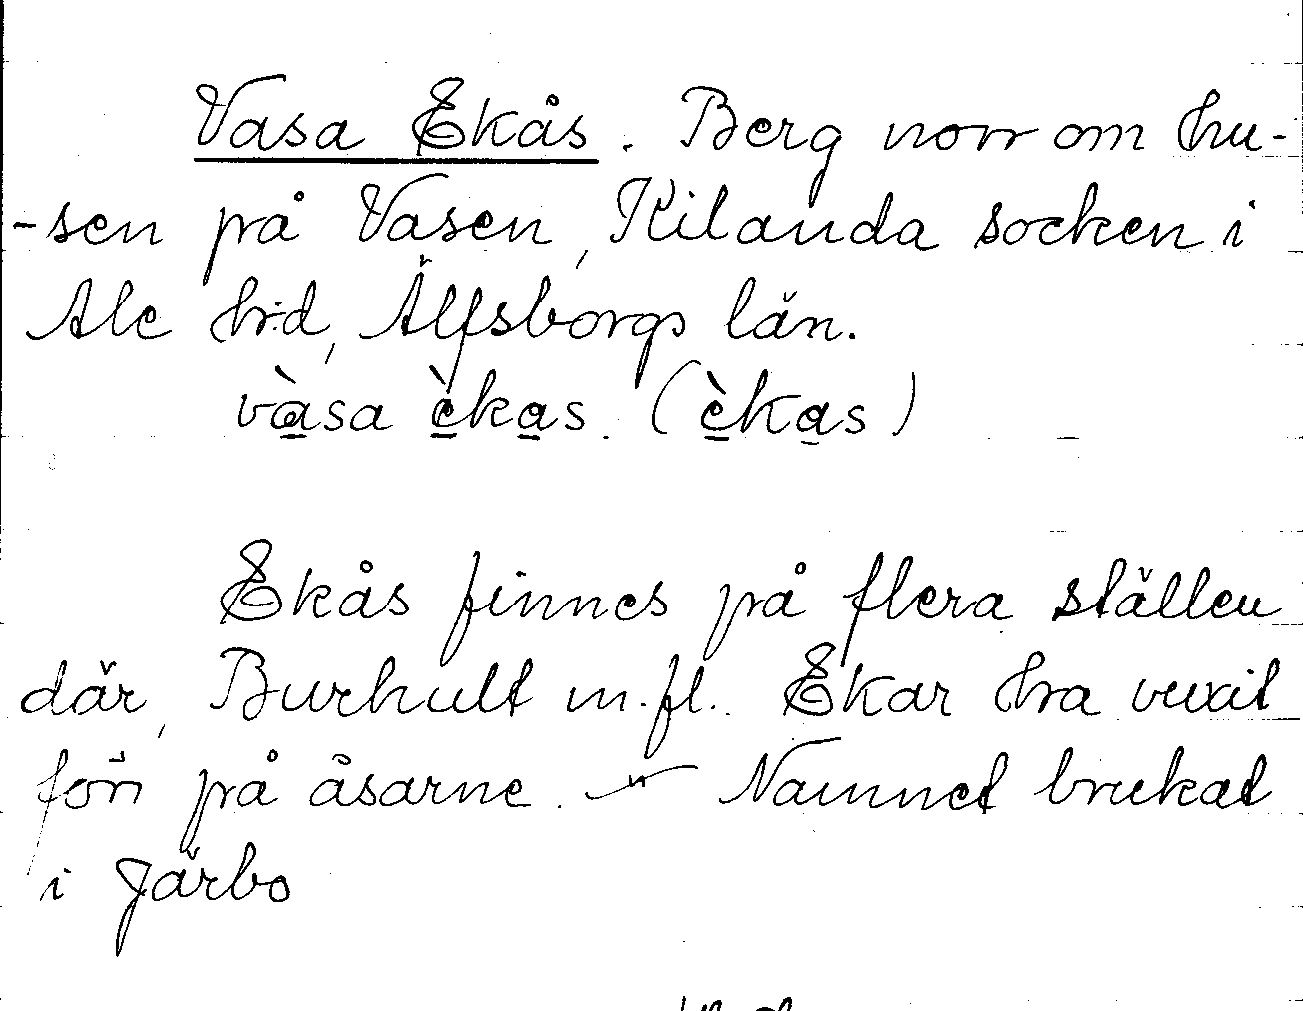 Vasa Ekås. Berg norr om hu-
-sen på Vasen, Kilanda socken i
Ale hrd, Älfsborgs län.
và̱sa è̱ka̱s. (è̱ka̱s)
Ekås finnes på flera ställen
där, Burhult m.fl. Ekar hra vuxit
förr på åsarne. — Namnet brukat
i Järbo